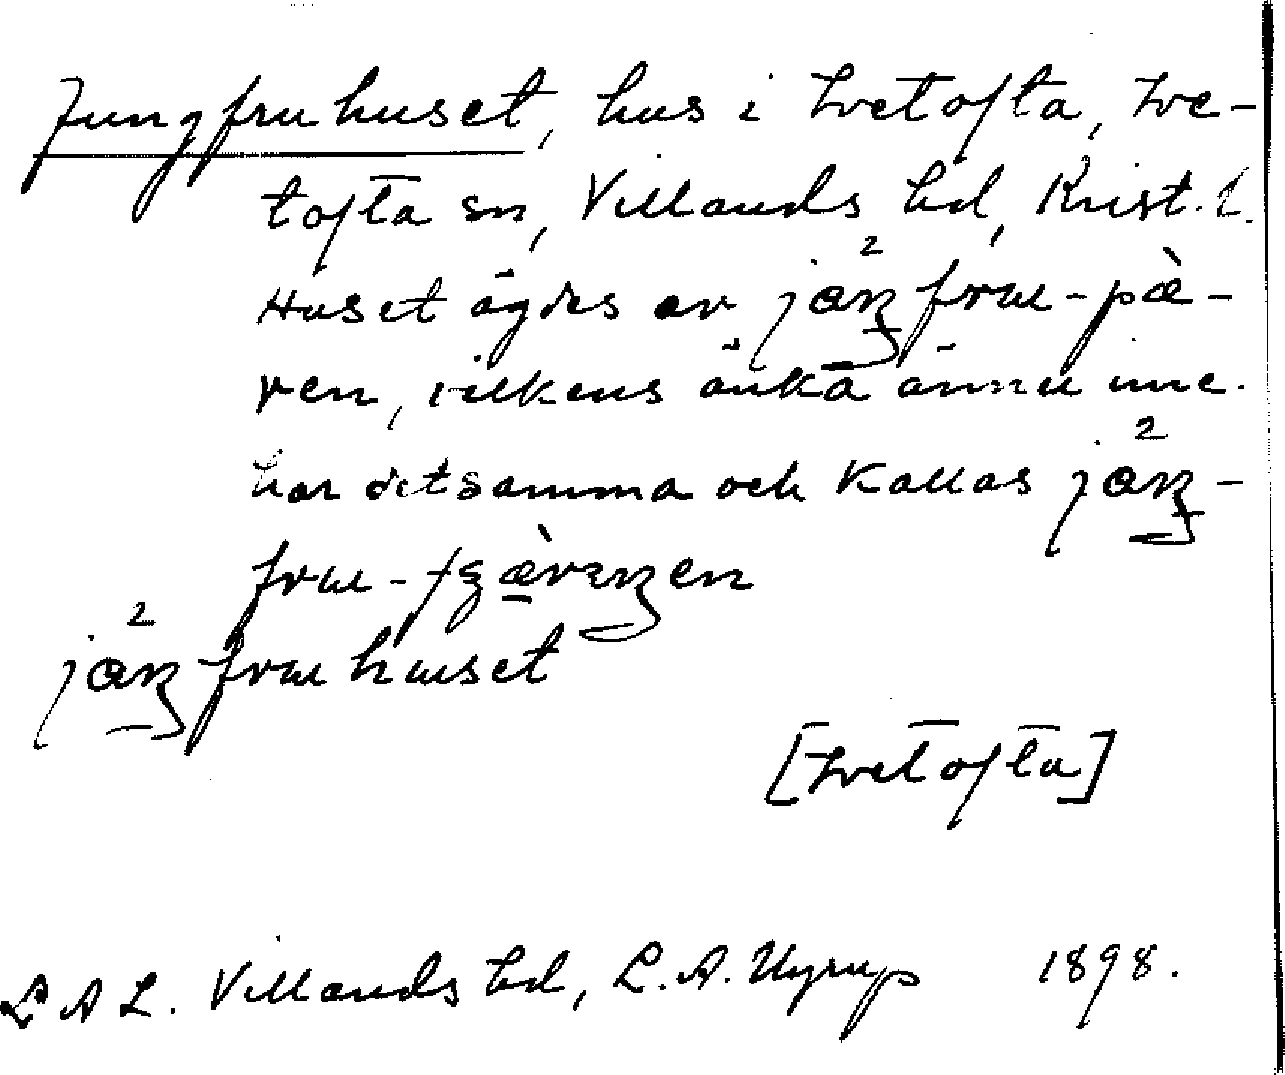 Jungfruhuset, hus i Ivetofta, Ive-
tofta sn, Villands hd, Krist. l.
Huset ägdes av jåŋfrɯ-pæ̀-
ren, vilkens änka ännu inne-
har detsamma och kallas jåŋ-
frɯ-
jåŋfrɯhɯset
[Ivetofta]
L A L. Villands hd, L. A. Nyrup 1898.